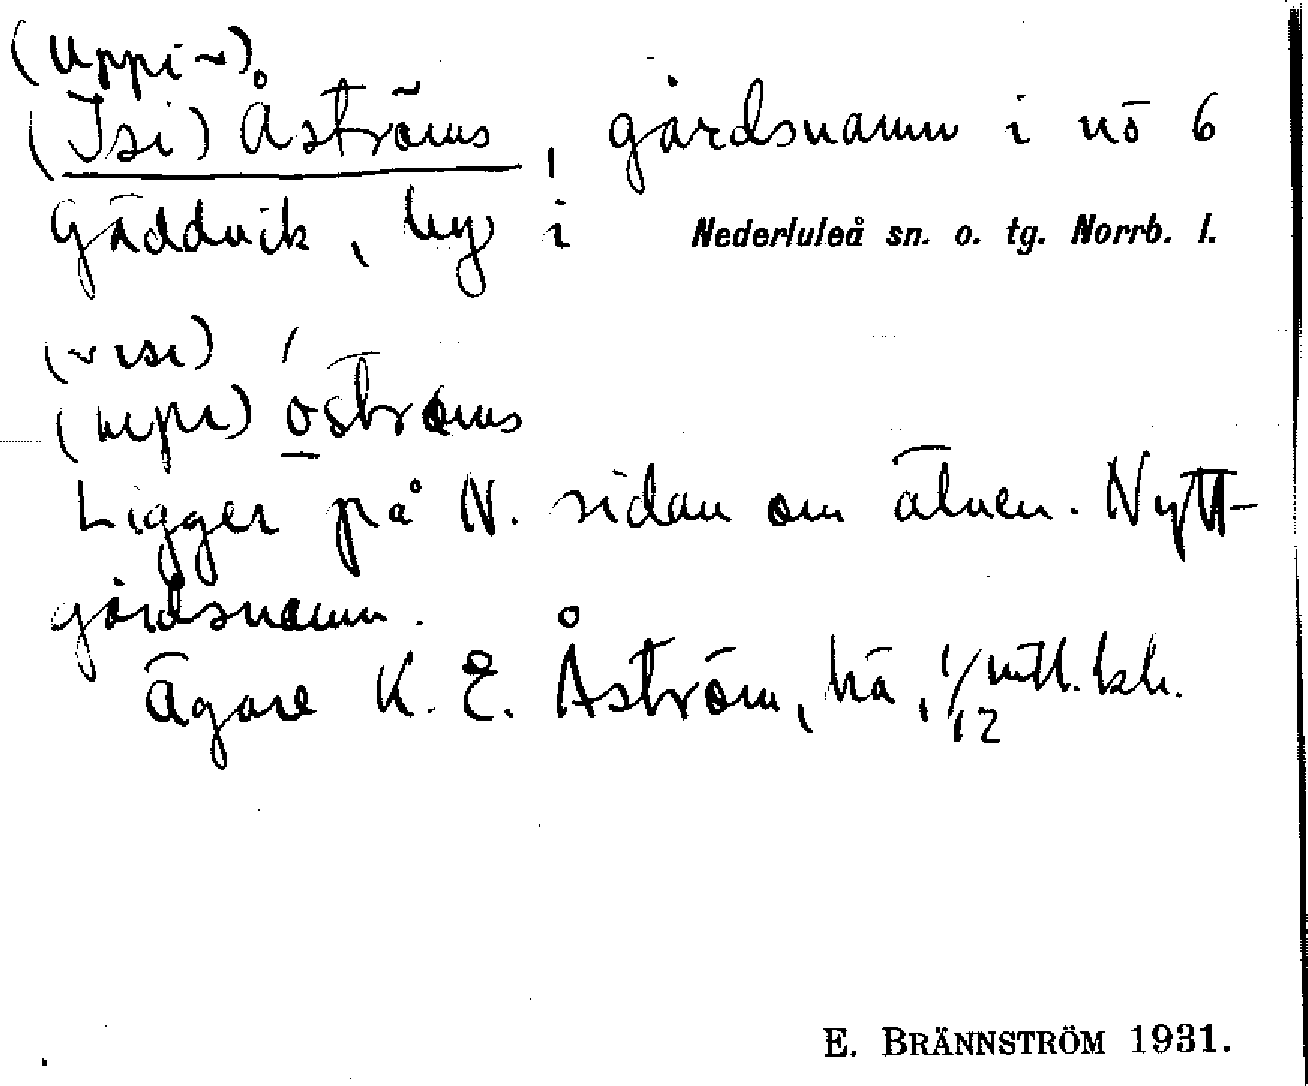 (Uppi ~)
(Isi) Åströms, gårdsnamn i nö 6
Gäddvik, by i Nederluleå sn. o. tg. Norrb. l.
(~ isi)
(upi) óströms
Ligger på N. sidan om älven. Nytt-
gårdsnamn.
Ägare K. E. Åström, hä, 1/12 mtl. kr.
E. BRÄNNSTRÖM 1931.